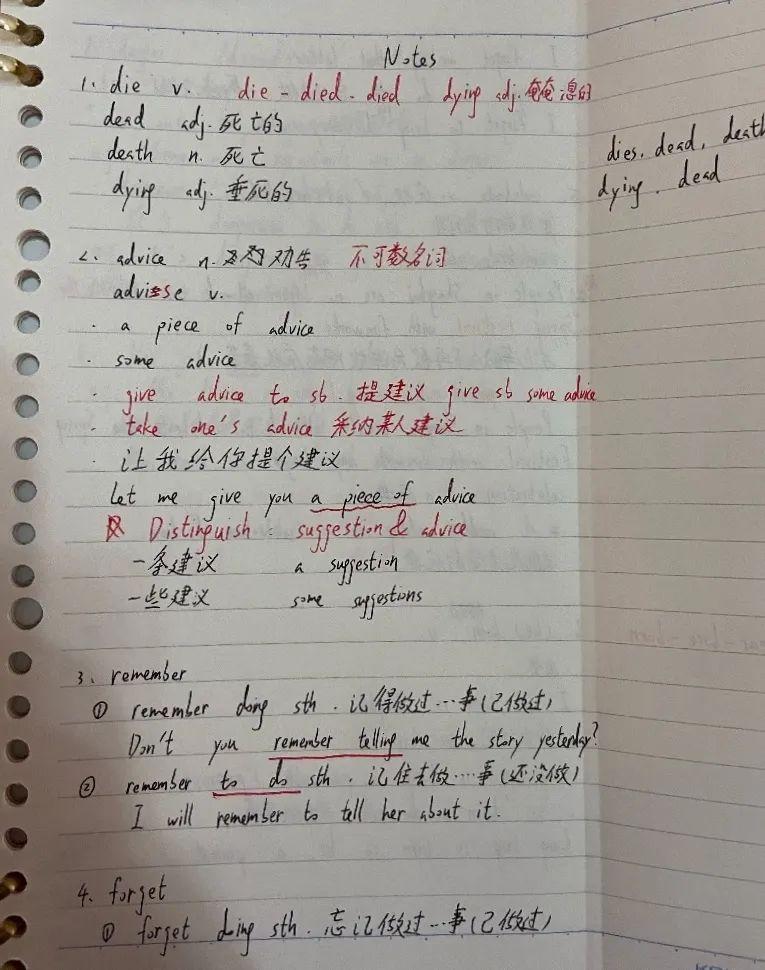 Notes
1. die v. die - died - died dying adj. 奄奄息的
dead adj. 死亡的
death n. 死亡
dying adj. 垂死的
dies, dead, death
dying, dead
2. advice n. 劝告 不可数名词
advise v.
· a piece of advice
· some advice
· give advice to sb. 提建议 give sb some advice
· take one's advice 采纳某人建议
· 让我给你提个建议
Let me give you a piece of advice
Distinguish: suggestion & advice
一条建议 a suggestion
一些建议 some suggestions
3. remember
① remember doing sth. 记得做过…事(已做过)
Don't you remember telling me the story yesterday?
② remember to do sth. 记住去做…事(还没做)
I will remember to tell her about it.
4. forget
① forget doing sth. 忘记做过…事(已做过)